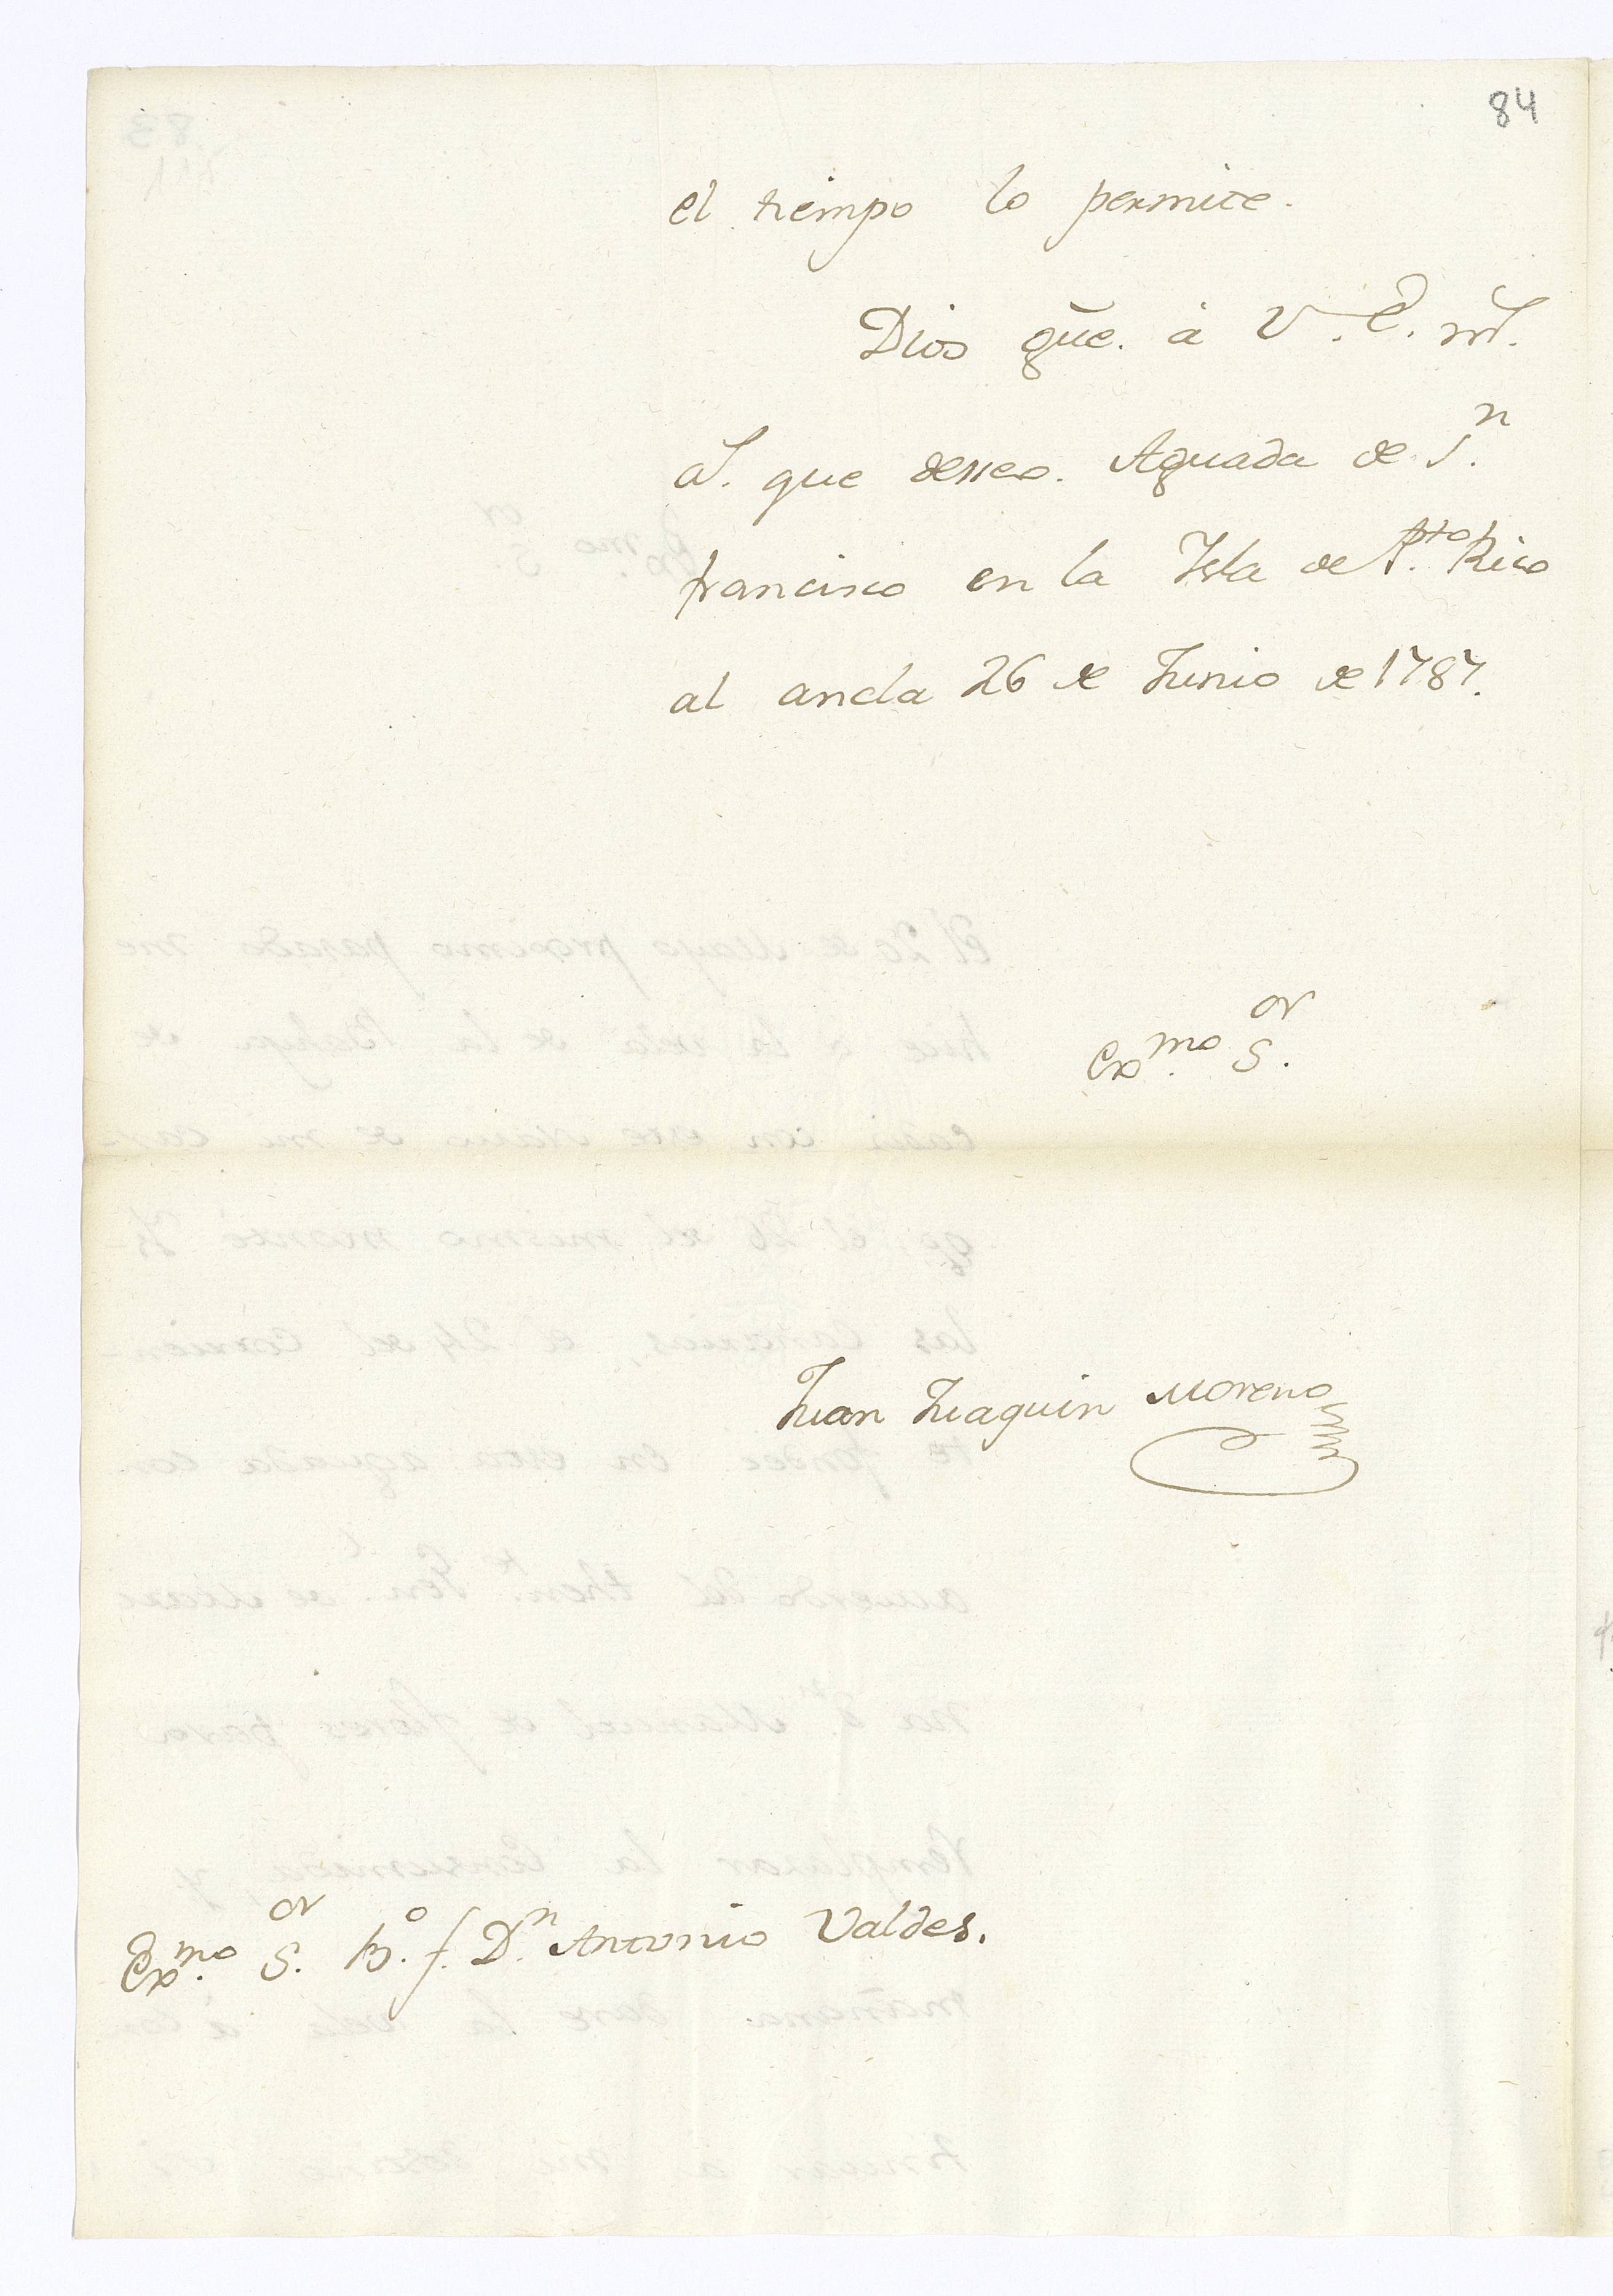 84
el tiempo lo permite.
Dios gūe. à V. E. ms.
as. que desseo. Aguada de Sn.
francisco en la Isla de Pto. Rico
al ancla 26 de Junio de 1787.
Exmo. Sor.
Juan Juaquin Moreno
Exmo. Sor. Bo. f. Dn. Antonio Valdes.